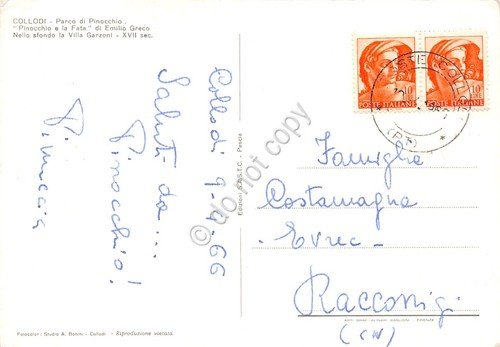 COLLODI - Parco di Pinocchio.
"Pinocchio e la Fata" di Emilio Greco
Nello sfondo la Villa Garzoni - XVII sec.
Collodi 9-7-66
Saluti da...
Pinocchio!
Pinuccia
10
POSTE ITALIANE
10
POSTE ITALIANE
(PT)
Famiglia
Costamagna
Racconigi
(CN)
Pescia
Fotocolor: Studio A. Bonini - Collodi - Riproduzione vietata
do not copy